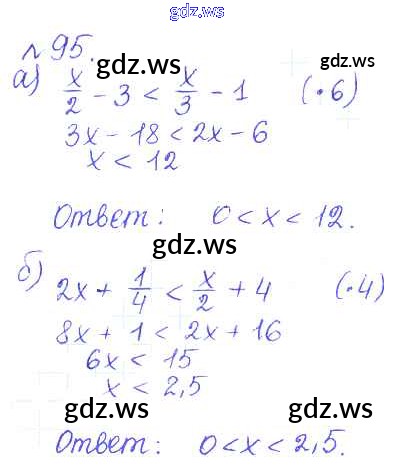 gdz.ws
№95.
gdz.ws
gdz.ws
а) x/2 - 3 < x/3 - 1 (·6)
3x - 18 < 2x - 6
x < 12
Ответ: 0 < x < 12.
gdz.ws
б) 2x + 1/4 < x/2 + 4 (·4)
8x + 1 < 2x + 16
6x < 15
x < 2,5
gdz.ws
gdz.ws
Ответ: 0 < x < 2,5.
gdz.ws